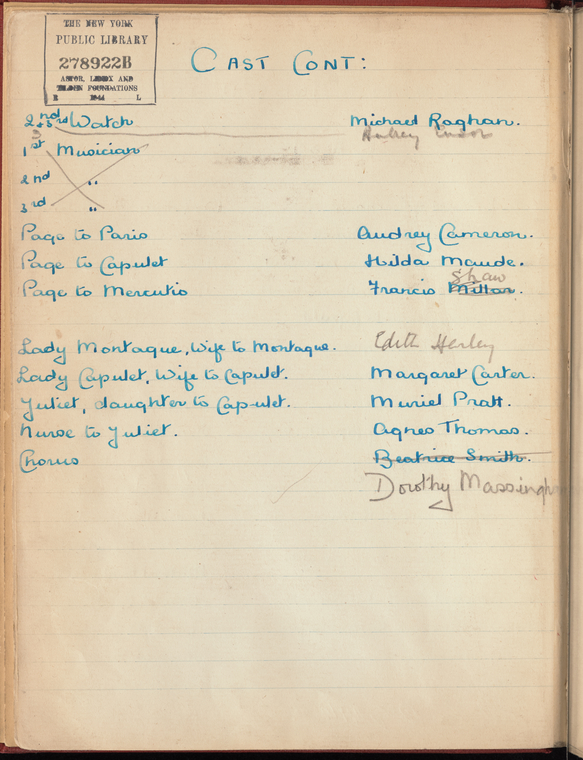 THE NEW YORK
PUBLIC LIBRARY
278922B
ASTOR, LENOX AND
TILDEN FOUNDATIONS
R 1944 L
CAST CONT:
2nd 3rd Watch Michael Raghan.
3 Aubrey
1st Musician
2nd "
3rd "
Page to Paris Audrey Cameron.
Page to Capulet Hilda Maude.
Shaw
Page to Mercutio Francis Millar.
Lady Montague, Wife to Montague. Edith Harley
Lady Capulet, Wife to Capulet. Margaret Carter.
Juliet, daughter to Capulet. Muriel Pratt.
Nurse to Juliet. Agnes Thomas.
Chorus Beatrice Smith.
Dorothy Massingham